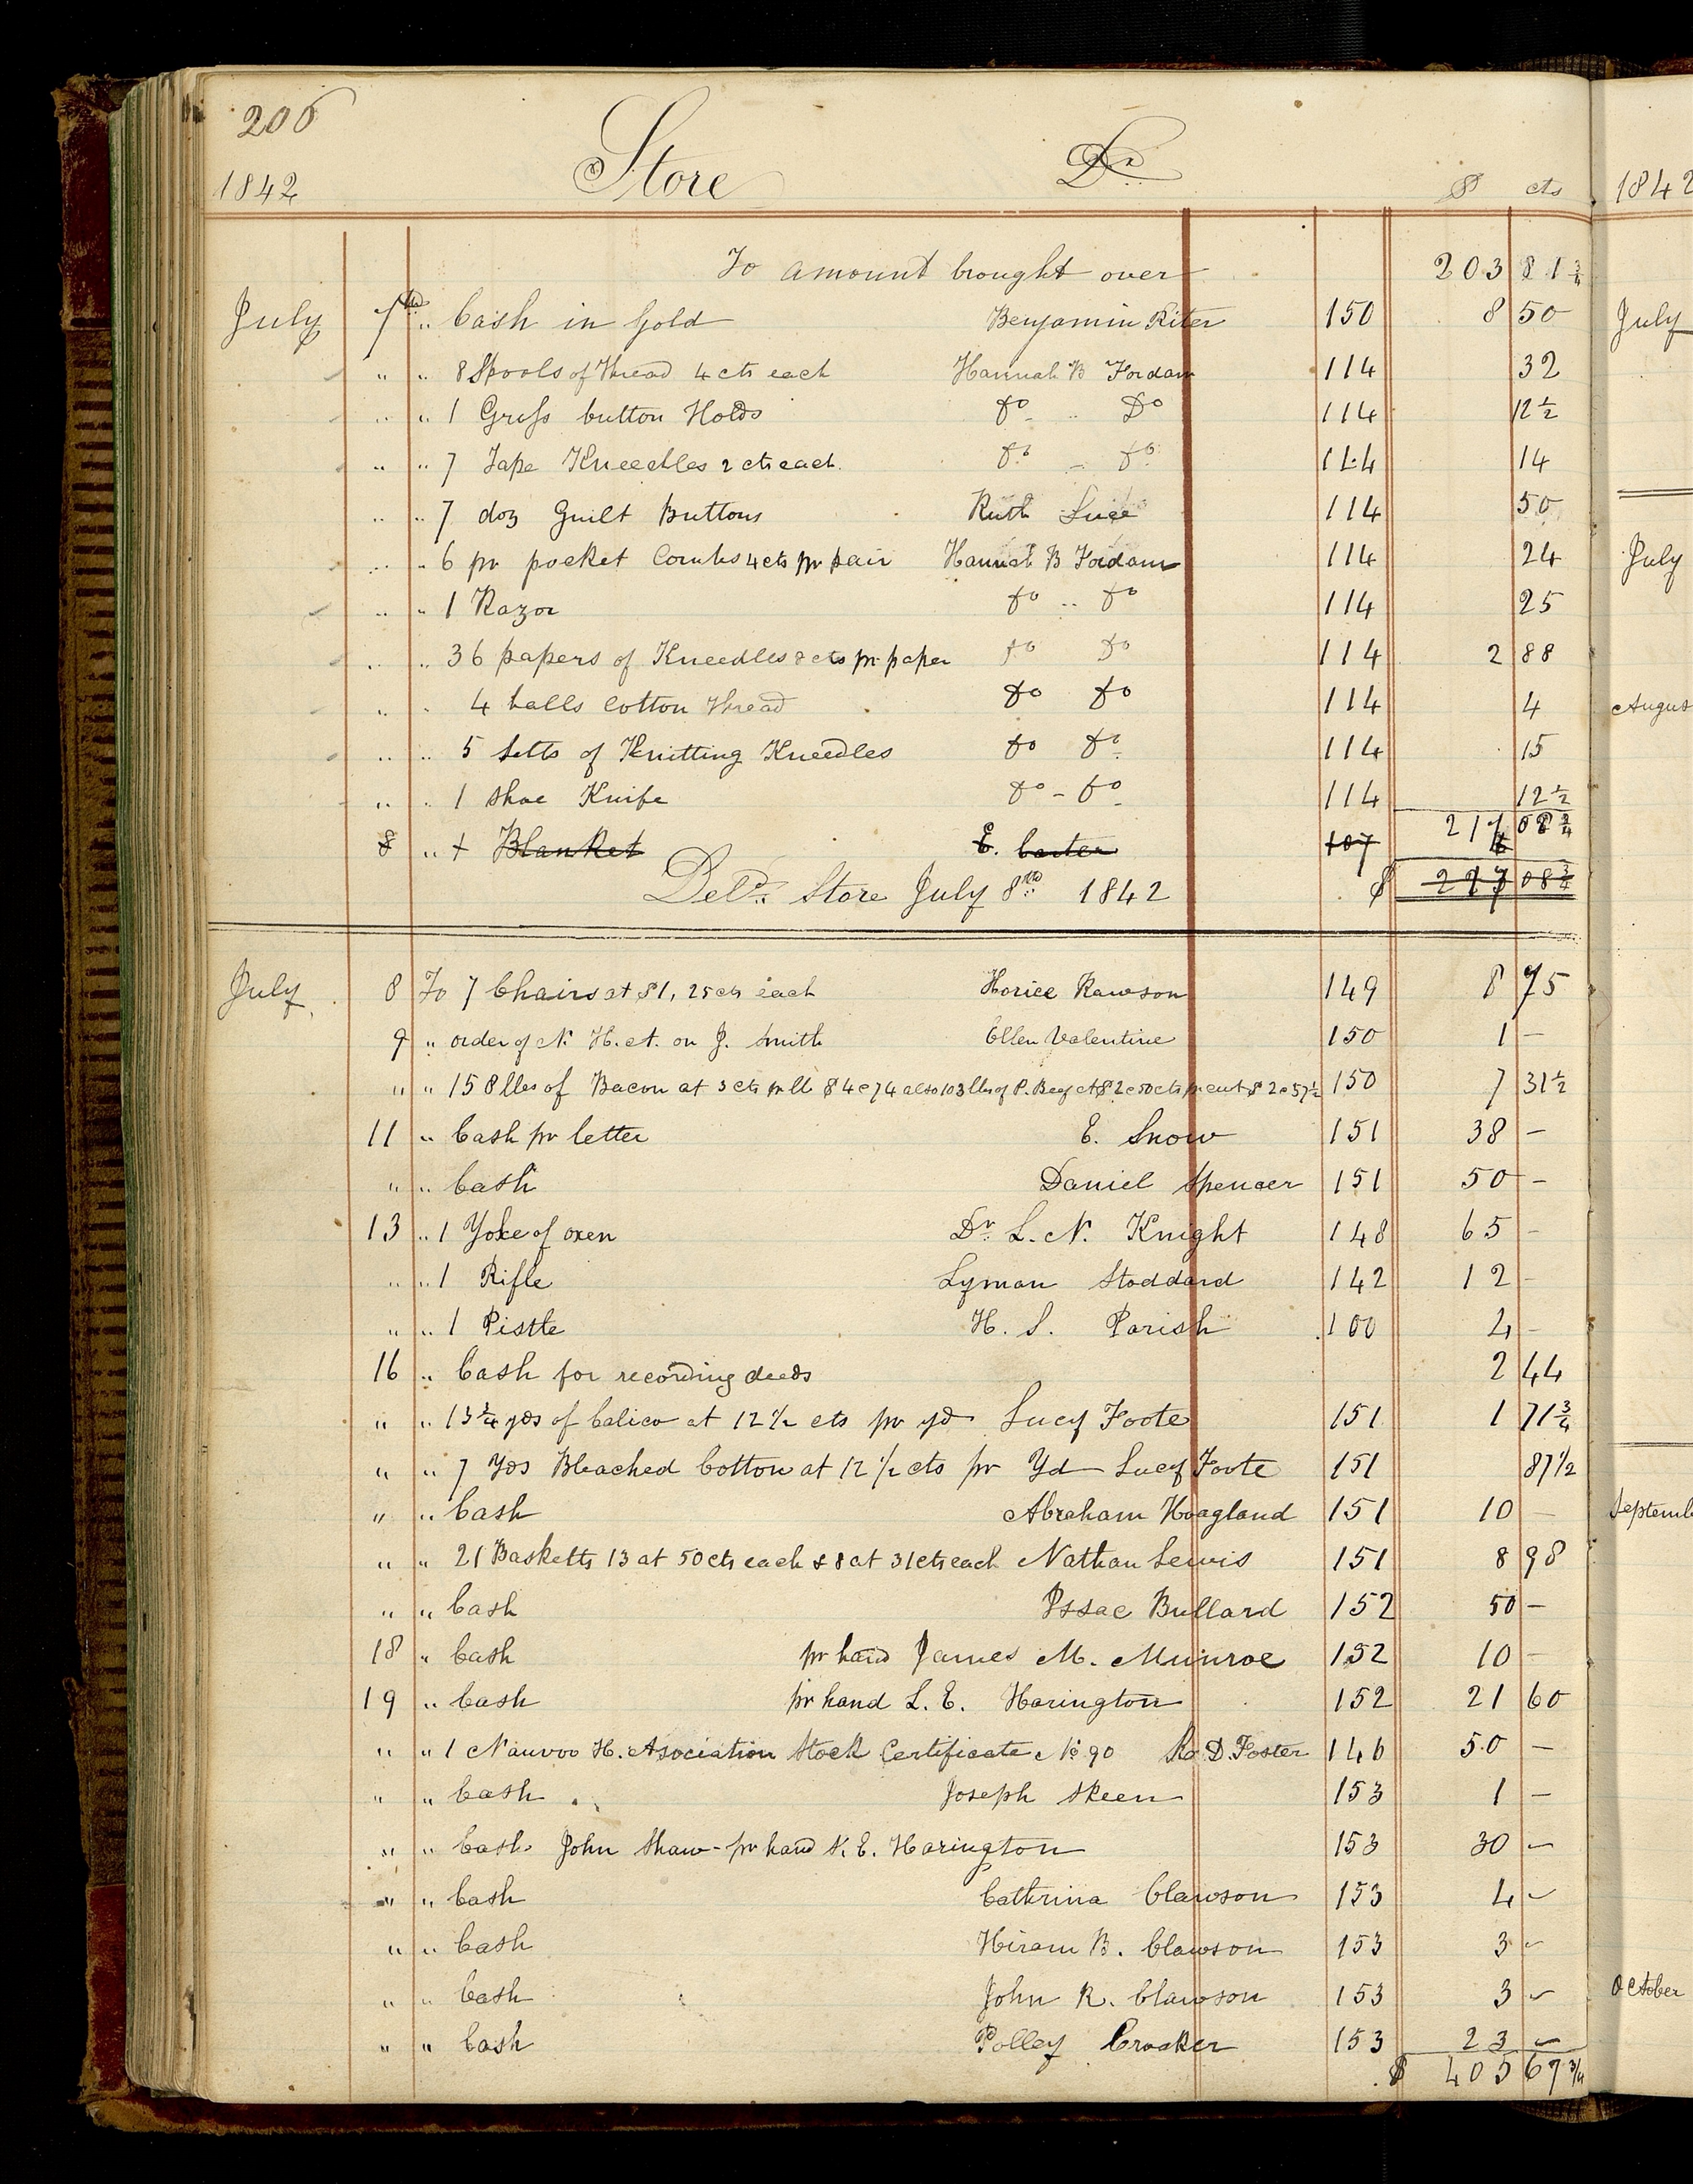 206
1842 Store Dr. $ cts
To amount brought over 203 81 3/4
July 7th " Cash in Gold Benjamin Riter 150 8 50
" " 8 Spools of Thread 4 cts each Hannah B Fordam 114 32
" " 1 Gross button Holds Do " Do 114 12 1/2
" " 7 Tape Kneedles 2 cts each Do " Do 114 14
" " 7 doz Guilt Buttons Ruth Luce 114 50
" " 6 pr pocket Combs 4 cts pr pair Hannah B Fordam 114 24
" " 1 Razor Do " Do 114 25
" " 36 papers of Kneedles 8 cts pr paper Do Do 114 2 88
" " 4 balls Cotton Thread Do Do 114 4
" " 5 Setts of Knitting Kneedles Do Do 114 15
" " 1 Shoe Knife Do - Do 114 12 1/2
217 08 3/4
8 " 1 Blanket E. Carter 107
Deld. Store July 8th 1842 $ 217 08 3/4
July 8 To 7 Chairs at $1, 25 cts each Horice Rawson 149 8 75
9 " order of N. H. A. on J. Smith Ellen Valentine 150 1 —
" " 158 lbs of Bacon at 3 cts pr lb $4 c74 also 103 lbs of P. Beef at $2 c50 cts pr cwt $2 c57 1/2 150 7 31 1/2
11 " Cash pr letter E. Snow 151 38 —
" " Cash Daniel Spencer 151 50 —
13 " 1 Yoke of oxen Dr. L. N. Knight 148 65 —
" " 1 Rifle Lyman Stoddard 142 12 —
" " 1 Pistle H. S. Parish 100 4 —
16 " Cash for recording deeds 2 44
" " 13 3/4 yds of Calico at 12 1/2 cts pr yd Lucy Foote 151 1 71 3/4
" " 7 Yds Bleached Cotton at 12 1/2 cts pr Yd Lucy Foote 151 87 1/2
" " Cash Abraham Hoagland 151 10 —
" " 21 Basketts 13 at 50 cts each & 8 at 31 cts each Nathan Lewis 151 8 98
" " Cash Issac Bullard 152 50 —
18 " Cash pr hand James M. Munroe 152 10 —
19 " Cash pr hand L. E. Harington 152 21 60
" " 1 Nauvoo H. Asociation Stock Certificate No 90 Ro. D. Foster 146 50 —
" " Cash Joseph Skeen 153 1 —
" " Cash John Shaw - pr hand L. E. Harington 153 30 —
" " Cash Cathrina Clawson 153 4 —
" " Cash Hiram B. Clawson 153 3 —
" " Cash John R. Clawson 153 3 —
" " Cash Polley Crooker 153 23 —
$ 405 67 3/4
1842
July
July
August
September
October